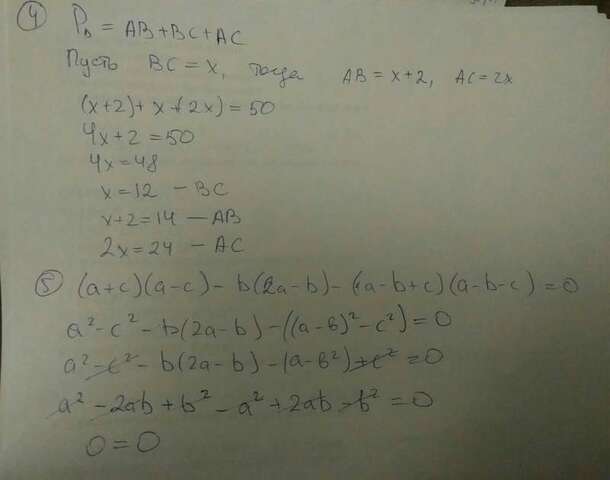 4 P△ = AB+BC+AC
Пусть BC = x, тогда AB = x+2, AC = 2x
(x+2)+x+(2x) = 50
4x+2 = 50
4x = 48
x = 12 – BC
x+2 = 14 – AB
2x = 24 – AC
5 (a+c)(a-c) - b(2a-b) - (a-b+c)(a-b-c) = 0
a² - c² - b(2a-b) - ((a-b)² - c²) = 0
a² - c² - b(2a-b) - (a-b²) + c² = 0
a² - 2ab + b² - a² + 2ab - b² = 0
0 = 0